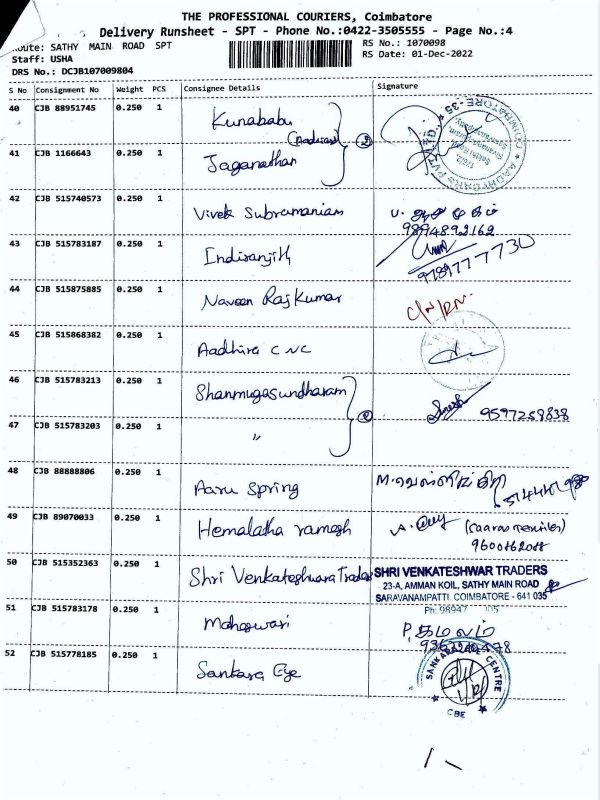 THE PROFESSIONAL COURIERS, Coimbatore
Delivery Runsheet - SPT - Phone No.:0422-3505555 - Page No.:4
Route: SATHY MAIN ROAD SPT
RS No.: 1070098
Staff: USHA
RS Date: 01-Dec-2022
DRS No.: DCJB107009804
S No Consignment No Weight PCS Consignee Details Signature
40 CJB 88951745 0.250 1 Kunababu
41 CJB 1166643 0.250 1 Jaganathan
COIMBATORE-35
42 CJB 515740573 0.250 1 Vivek Subramaniam
9894892162
43 CJB 515783187 0.250 1 Indiranjith
9789777730
44 CJB 515875885 0.250 1 Naveen Raj Kumar
45 CJB 515868382 0.250 1 Aadhira CNC
46 CJB 515783213 0.250 1 Shanmugasundharam
9597259838
47 CJB 515783203 0.250 1 "
48 CJB 88888806 0.250 1 Aaru Spring
49 CJB 89070033 0.250 1 Hemalatha ramesh
50 CJB 515352363 0.250 1 Shri Venkateshwara Traders
SHRI VENKATESHWAR TRADERS
23-A, AMMAN KOIL, SATHY MAIN ROAD
SARAVANAMPATTI, COIMBATORE - 641 035
51 CJB 515783178 0.250 1 Maheswari
P. கமலம்
52 CJB 515778185 0.250 1 Sankara Eye
CBE